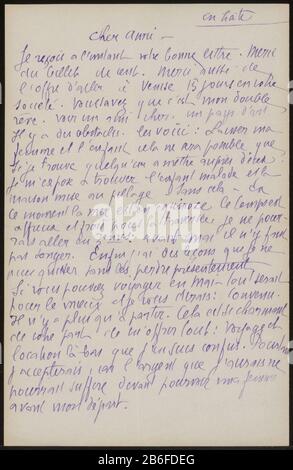 en hâte
cher ami -
Je reçois à l'instant votre bonne lettre. Merci
du billet de cent. Merci aussi de
l'offre d'aller à Venise 15 jours en votre
société. Vous savez que c'est mon double
rêve. voir un ami cher. un pays d'art
Il y a des obstacles. les voici: Laisser ma
femme et l'enfant cela ne m'est possible que
si je trouve quelqu'un à mettre auprès d'eux:
Je m'expose à trouver l'enfant malade et la
maison mise au pillage sans cela - En
ce moment la
affreux et je ne pour-
rais aller en avant mai il n'y faut
pas songer. Enfin j'ai des leçons que je ne
puis quitter sans les perdre présentement
Si vous pouvez voyager en mai tout serait
pour le mieux et je vous dirais: convenu.
Il n'y a plus qu'à partir. Cela est si charmant
de votre part de m'offrir tout: voyage et
location là-bas que j'en suis confus.
j'accepterais; car l'argent que j'aurais ne
pourrait suffire devant pourvoir ma femme
avant mon départ.
alamy
Image ID: 2B6FDEG
www.alamy.com